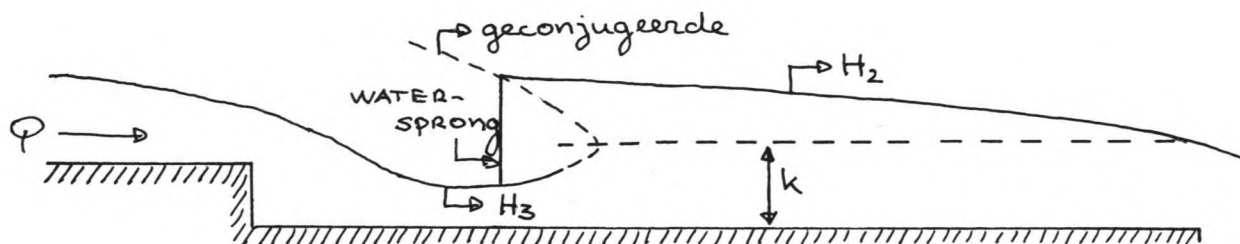 geconjugeerde
H2
WATER-
SPRONG
Q
k
H3